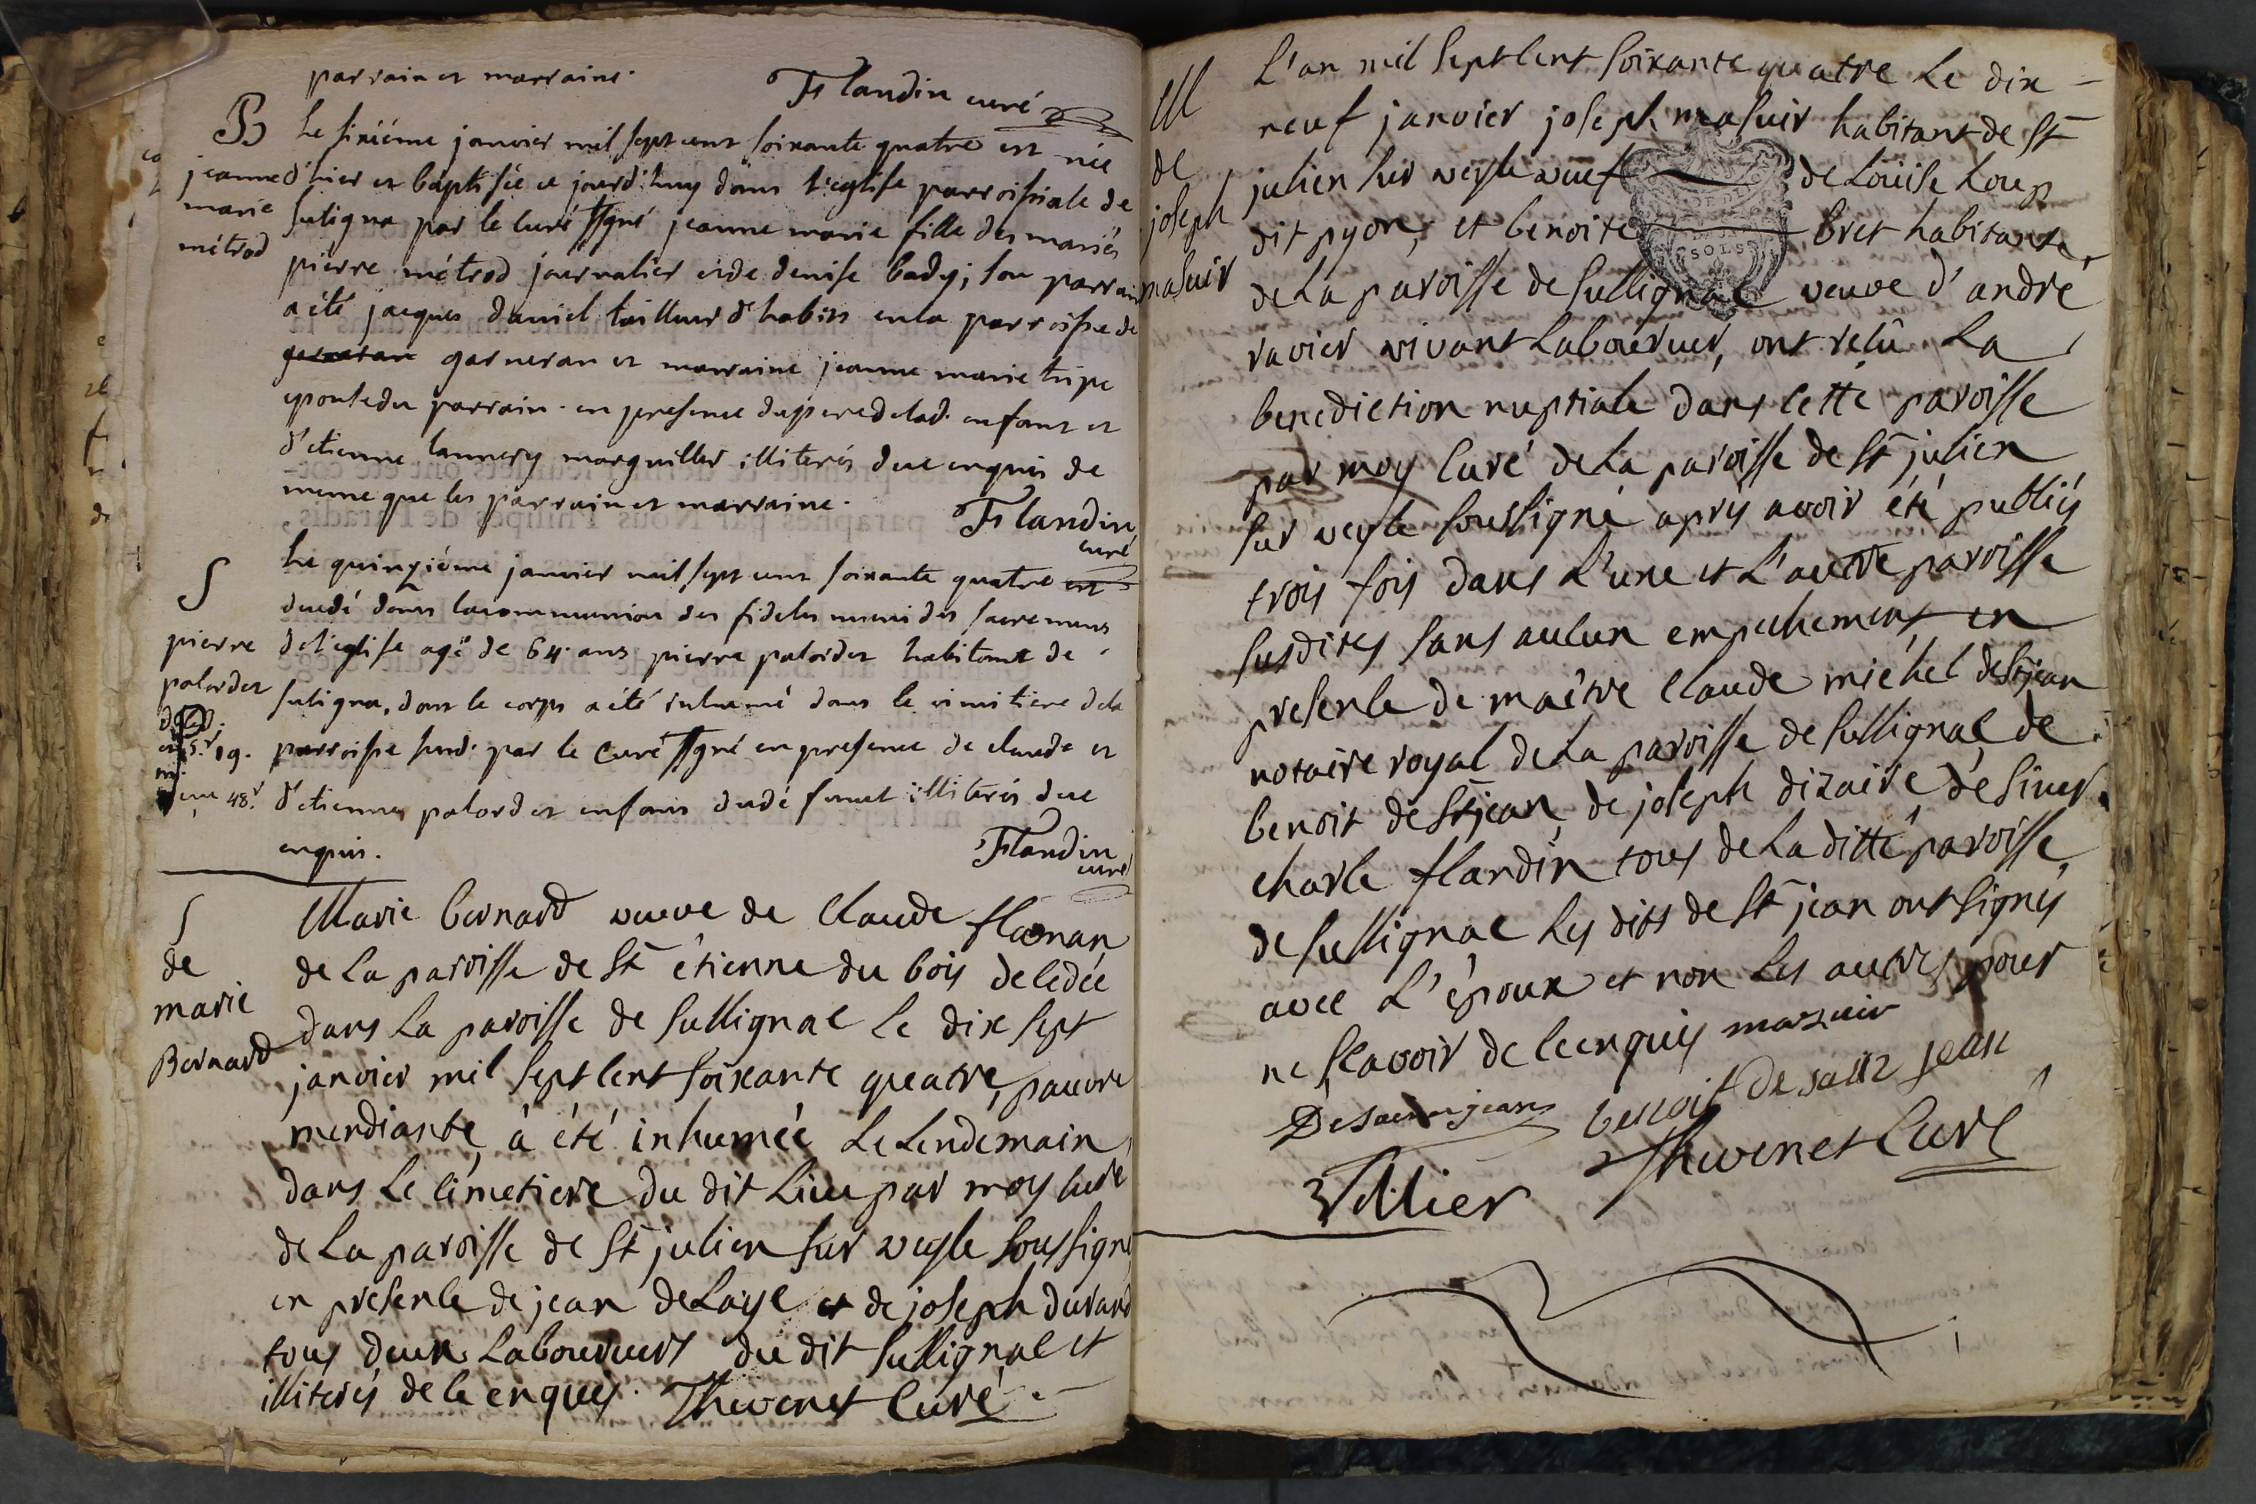 parrain et marraine.
Flandin curé
B
jeanne
marie
métrod
Le sixiéme janvier mil sept cent soixante quatre est née
d'hier et baptisée ce jourd'huy dans l'eglise parroissiale de
suligna par le curé ssgné jeanne marie fille des mariés
pierre métrod journalier et de denise bady; son parrain
a été jacques daniel tailleur d'habits en la parroisse de
garneran et marraine jeanne marie tripe
epouse du parrain. en presence du pere de lad. enfant et
d'etienne lannery marguiller illiterés de ce enquis de
meme que les parrain et marraine.
Flandin
curé
S
pierre
palordet
Le quinziéme janvier mil sept cent soixante quatre est
decedé dans la communion des fideles muni des sacremens
de l'eglise agé de 64. ans pierre palordet habitant de
suligna, dont le corps a été inhumé dans le cimitiere de la
parroisse susd. par le curé ssgné en presence de claude et
d'etienne palordet enfans du défunct illiterés de ce
enquis.
Flandin
curé
S
de
marie
Bernard
Marie bernard veuve de Claude
de La paroisse de St étienne du bois decedée
dans La paroisse de Sullignac Le dix sept
janvier mil Sept Cent Soixante queatre, pauvre
mendiante, à été inhumée Le Lendemain
dans Le Cimetiere du dit Lieu par moy Curé
de La paroisse de St julien Sur veyle Soussigné
en presence de jean deLaye et de joseph durand
tous deux Laboureurs du dit Sullignac et
illiterés de Ce enquis. Thevenet Curé
M
de
joseph
masuir
L'an mil Sept Cent Soixante quatre Le dix
neuf janvier joseph masuir habitant de St
julien Sur veyle veuf de Loüise Loup
dit pyon, et benoite bret habitante
de La paroisse de Sullignac veuve d'andre
ravier vivant Laboureur, ont reçû La
benediction nuptiale dans Cette paroisse
par moy Curé de La paroisse de St julien
Sur veyle Soussigné aprés avoir été publiés
trois fois dans L'une et L'autre paroisse
Susdites Sans aucun empechement en
presence de maître Claude michel de St jean
notaire royal de La paroisse de Sullignac de
benoit de St jean, de joseph dizaire, de Sieur
charle flandin tous de La ditte paroisse
de Sullignac Les dits de St jean ont Signés
avec L'époux et non Les autres pour
ne Sçavoir de Ce enquis mazuir
Desaintjean benoit de saint jean
Thevenet Curé